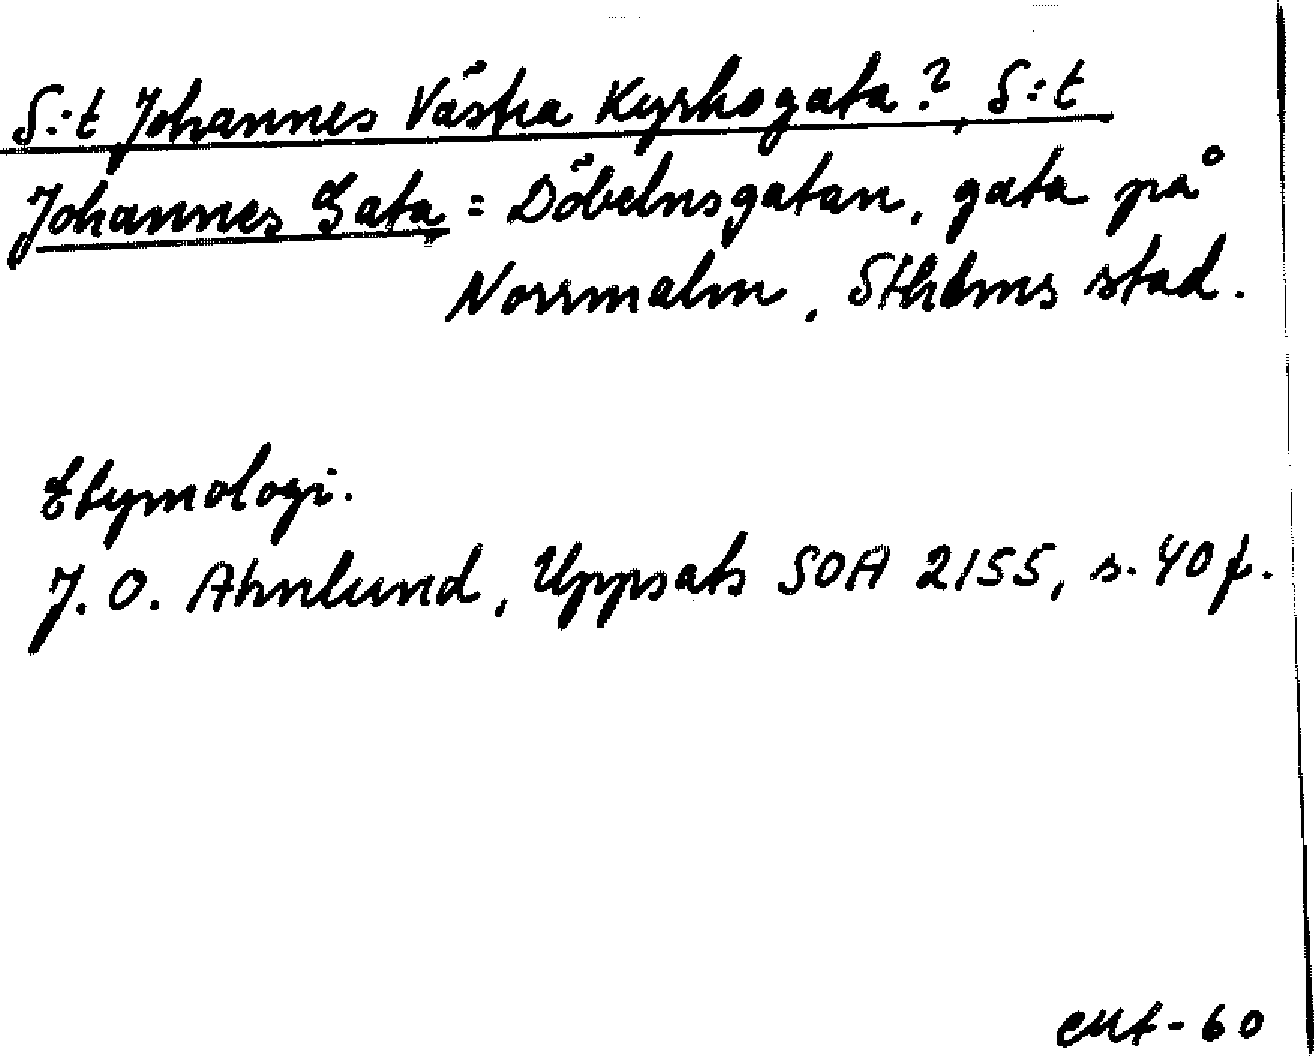 S:t Johannes Västra Kyrkogata?, S:t
Johannes Gata = Döbelnsgatan, gata på
Norrmalm, Sthlms stad.
Etymologi.
J. O. Ahnlund, Uppsats SOA 2155, s. 40 f.
-60